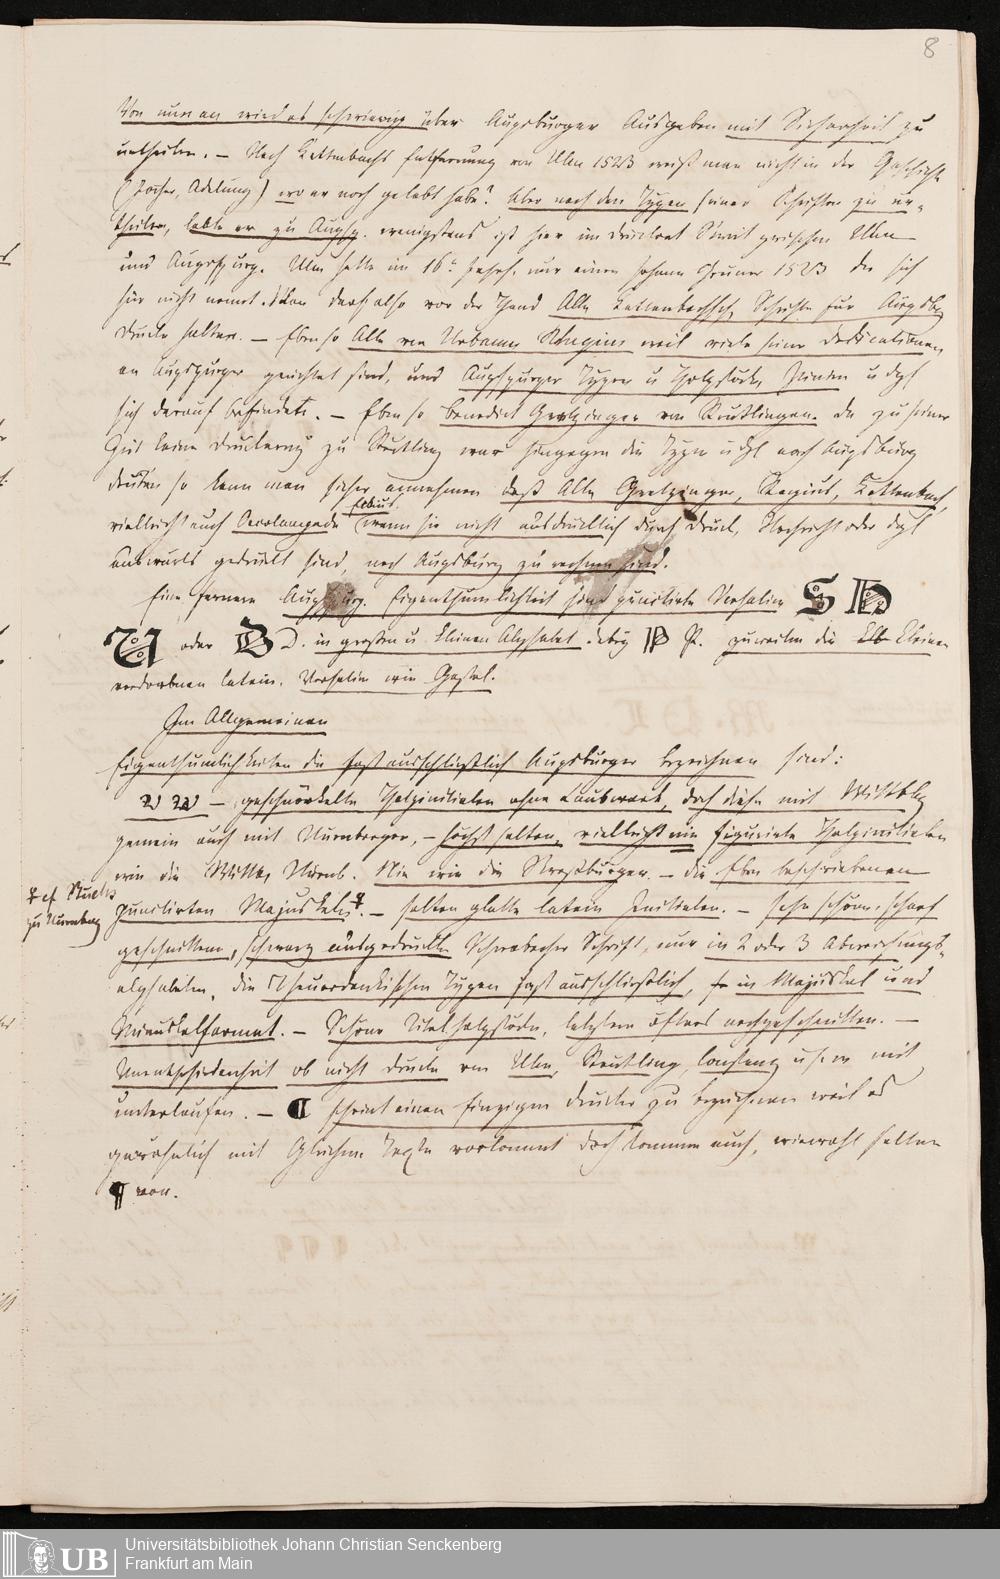 8
Von nun an wird es schwierig über Augsburger Ausgaben mit Sicherheit zu
urtheilen. – Nach Kettenbachs Entfernung von Ulm 1523 weiß man nicht in der Geschichte
(Jocher, Adelung) wo er noch gelebt habe? Aber nach den Typen seiner Schriften zu ur-
theilen, lebte er zu Augsp. wenigstens ist hier im Druckort Streit zwischen Ulm
und Augspurg. Ulm hatte im 16t Jahrh. nur einen Johann Gruner 1523 der sich
hier nicht nennt. Man darf also vor der Hand Alle Kettenbachsch. Schriften für Augsb.
Drucke halten. – Ebenso Alle von Urbanus Rhegius weil viele seiner Dedicationen
an Augspurger gerichtet sind, und Augspurger Typen u Holzstöcke, Finden u dgl
sich darauf befindet. – Ebenso Benedict Gretzinger von Reutlingen. Da zu seiner
Zeit keine Druckerey zu Reutling war hingegen die Typen u dgl nach Augsburg
deuten so kann man sicher annehmen daß Alle Gretzinger, Regius, Kettenbach,
vielleicht auch Oecolampade wenn sie nicht ausdrücklich durch Druck, Nachricht oder dgl
auswärts gedruckt sind, nach Augsburg zu rechnen sind.
Eine fernere Augspurg. Eigenthümlichkeit sind punctirte Versalien S H
U oder D D. in großen u kleinen Alphabet. P P. zuweilen die kleinen
verdorbnen latein. Versalien
Im Allgemeinen
Eigenthümlichkeiten die fast ausschließlich Augsburger bezeichnen sind:
geschnörkelte Holzinitialen ohne Laubwerk, doch diese mit Wittbg
gemein auch mit Nurnberger, – höchst selten, vielleicht nie figurirte Holzinitialen
wie die Wittb, Nürnb. Nie wie die Straßburger. – die eben beschriebenen
punctirten Majuskeln. – selten glatte latein Initialen. – sehr schöne, scharf
cf
zu Nurnberg
geschnittene, schwarz ausgedruckte Schwabacher Schrift, nur in 2 oder 3 Abweichungs-
alphabeten, die Theuerdankischen Typen fast ausschließlich, in Majuskel und
Minuskelformat. – Schöne Titelholzstöcke, letztere öfters nachgeschnitten. –
Unentschiedenheit ob nicht Drucke von Ulm, Reutling, u s w mit
unterlaufen. – ¶ scheint einen einzigen Drucker zu bezeichnen weil es
gewöhnlich mit Gleichem Texte vorkommt doch kommen auch, wiewohl selten
¶ vor.
Universitätsbibliothek Johann Christian Senckenberg
Frankfurt am Main
UB